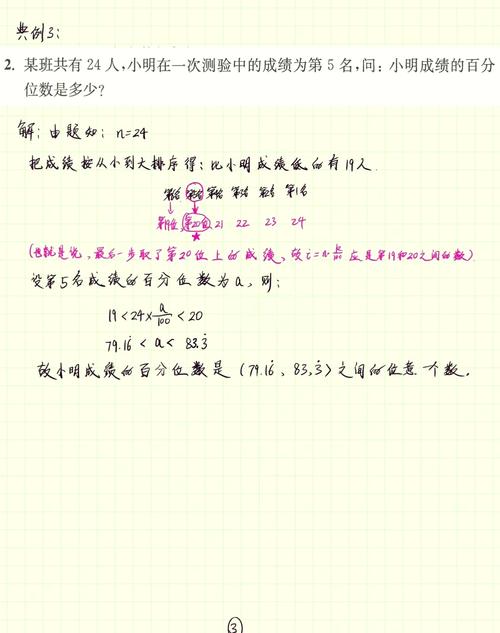 典例3:
2. 某班共有 24 人,小明在一次测验中的成绩为第 5 名,问:小明成绩的百分
位数是多少?
解:由题知:n=24
把成绩按从小到大排序得:比小明成绩低的有19人.
第6名 第5名 第4名 第3名 第2名 第1名
第19位 第20位 21 22 23 24
(也就是说,最后一步取了第20位上的成绩,故i=n·k/100应是第19和20之间的数)
设第5名成绩的百分位数为a,则:
19<24×a/100<20
79.16̇<a<83.3̇
故小明成绩的百分位数是(79.16̇,83.3̇)之间的任意一个数.
③